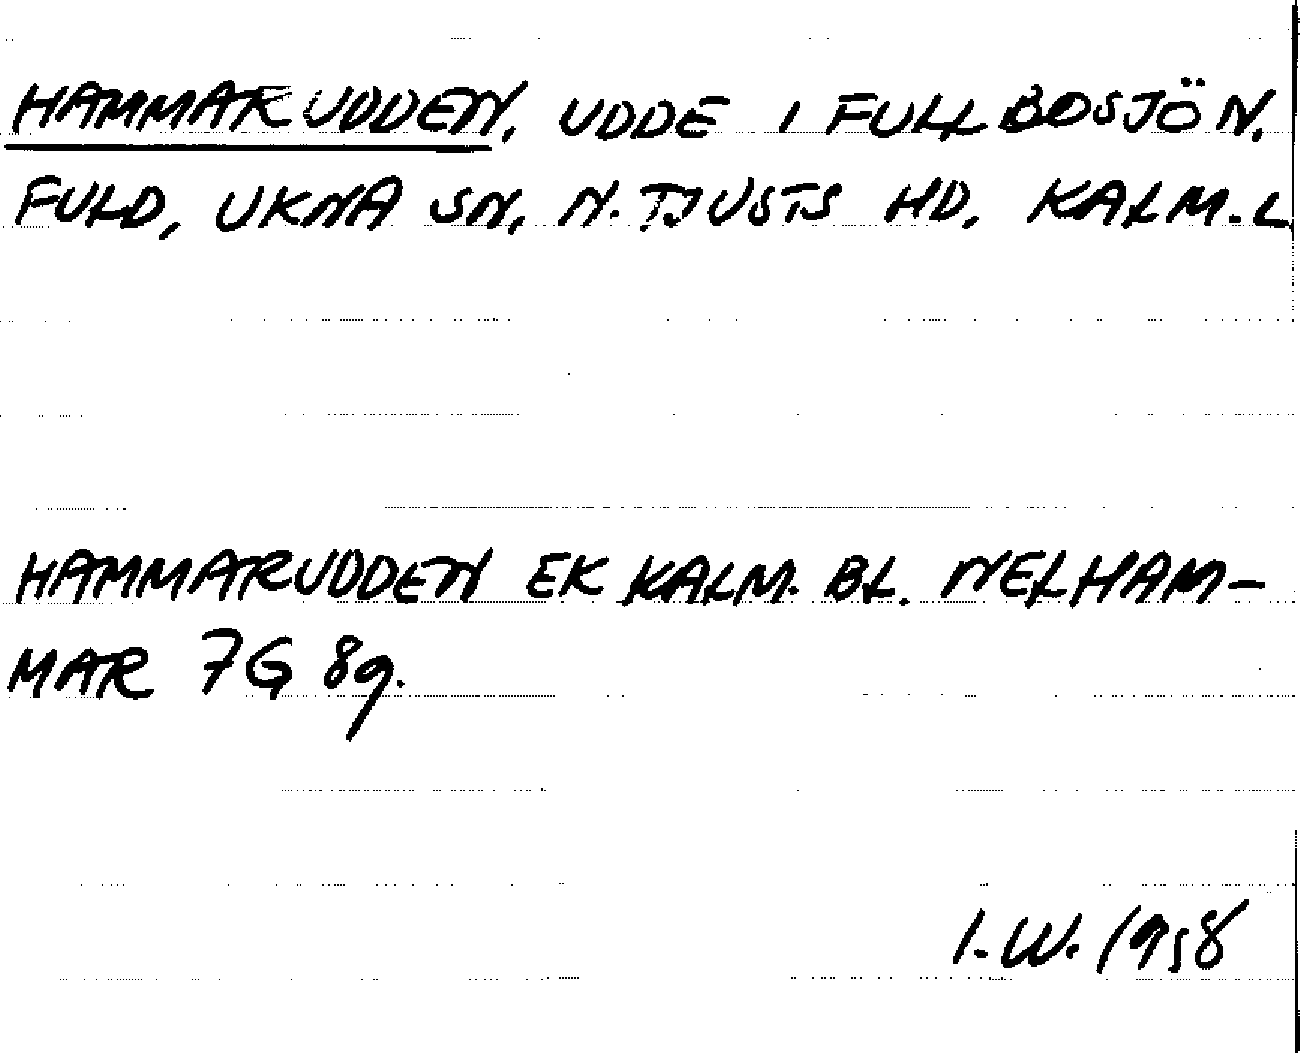 HAMMARUDDEN, UDDE I FULLBOSJÖN,
FULD, UKNA SN, N. TJUSTS HD, KALM. L.
HAMMARUDDEN EK KALM. BL. NELHAM-
MAR 7G 8g.
I. W. 1958